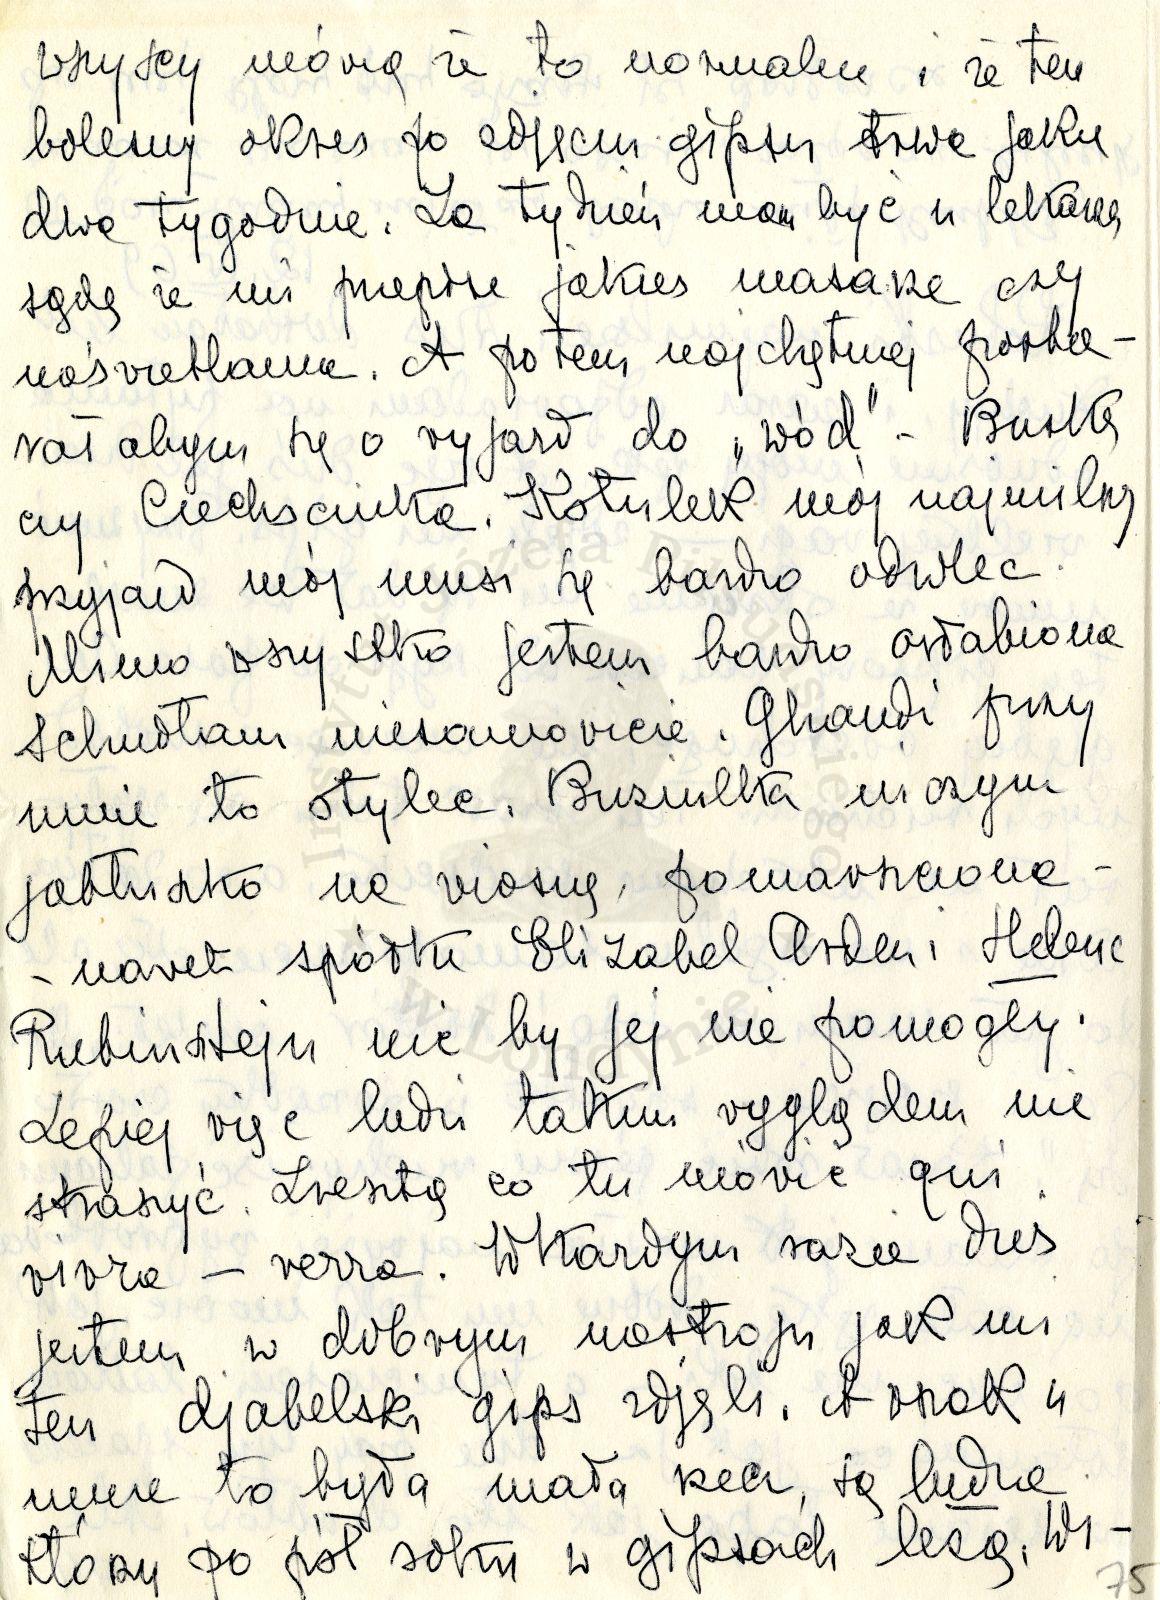 wszyscy mówią że to normalne i że ten
bolesny okres po zdjęciu gipsu trwa jakie
dwa tygodnie. Za tydzień mam być u lekarza
sądzę że mi przepisze jakieś masaże czy
naświetlania. A potem najchętniej postra-
rałabym się o wyjazd do „wód" - Buska
czy Ciechocinka. Kotulek mój najmilszy
przyjazd mój musi się bardzo odwlec.
Mimo wszystko jestem bardzo osłabiona
schudłam niesamowicie. Ghandi przy
mnie to otylec. Buziulka niczym
jabłuszko na wiosnę, pomarszczona -
- nawet spółka Elizabet Arden i Helene
Rubinstejn nic by jej nie pomogły.
Lepiej więc ludzi takim wyglądem nie
straszyć. Zresztą co tu mówić qui
vivra — verra. W każdym razie dziś
jestem w dobrym nastroju jak mi
ten djabelski gips zdjęli. A wszak u
mnie to była mała rzecz, są ludzie
którzy po pół roku w gipsach leżą. Wi-
75
Instytut Józefa Piłsudskiego
w Londynie